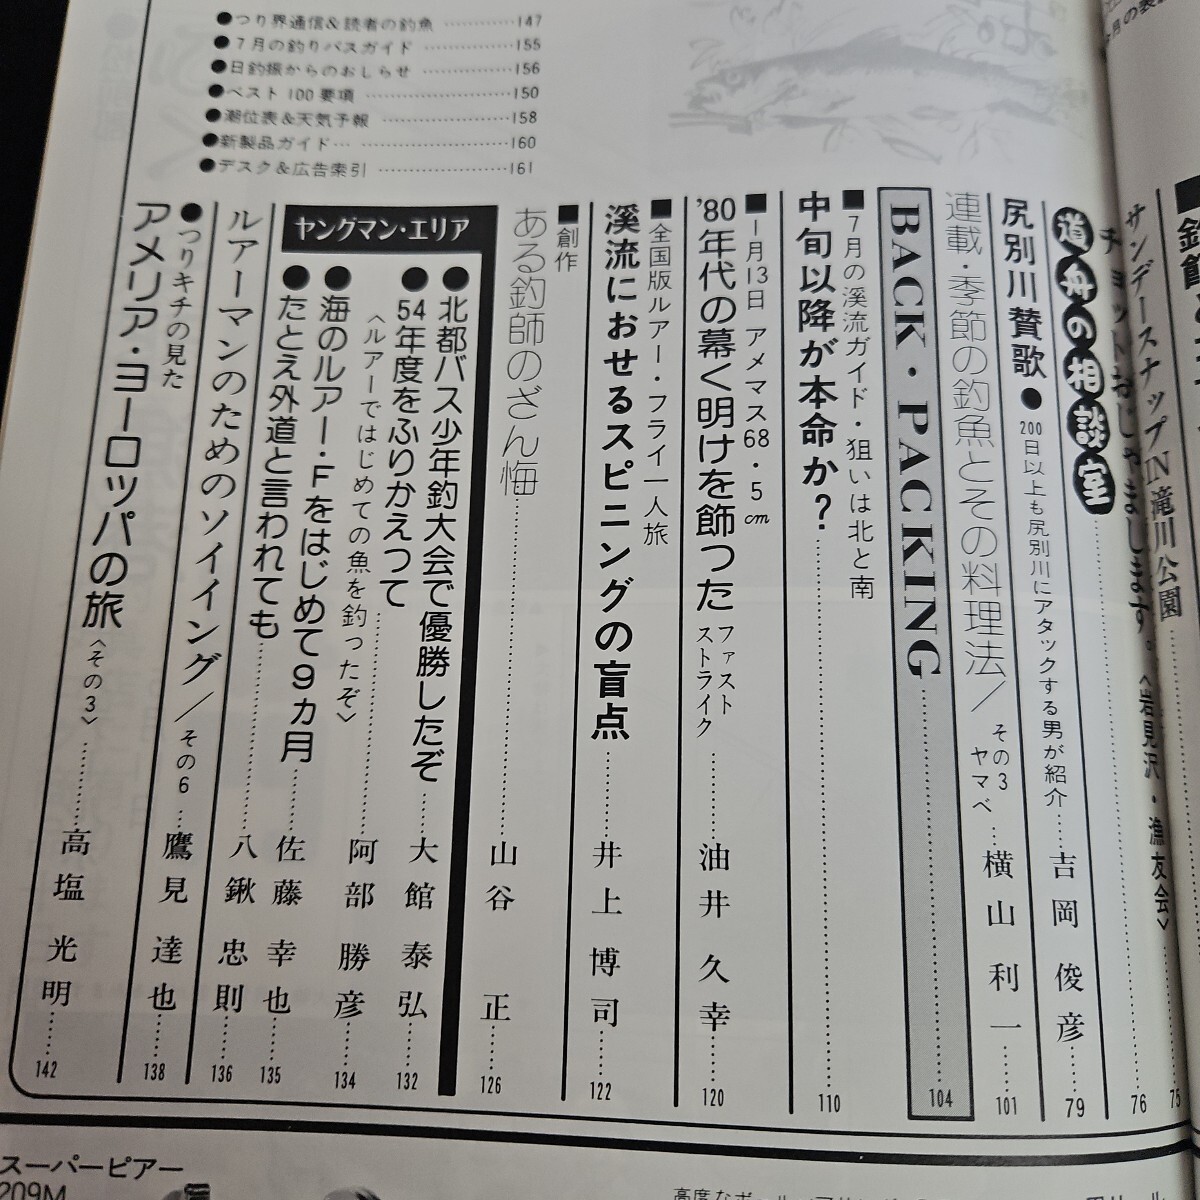 ●つり界通信＆読者の釣魚 ……………147
●7月の釣りバスガイド ……………155
●日釣振からのおしらせ ……………156
●ベスト100要項 ……………150
●潮位表＆天気予報 ……………158
●新製品ガイド… ……………160
●デスク＆広告索引 ……………161
サンデースナップIN滝川公園……75
チョットおじゃまします。〈岩見沢・漁友会〉
道舟の相談室……76
尻別川賛歌●200日以上も尻別川にアタックする男が紹介……吉岡俊彦……79
連載・季節の釣魚とその料理法／その3 ヤマベ…横山利一……101
BACK・PACKING……104
■7月の溪流ガイド・狙いは北と南
中旬以降が本命か？……110
■1月13日 アメマス68・5cm
'80年代の幕く明けを飾った ファスト ストライク……油井久幸……120
■全国版ルアー・フライ一人旅
溪流におせるスピニングの盲点……井上博司……122
■創作
ある釣師のざん悔……山谷 正……126
ヤングマン・エリア
●北都バス少年釣大会で優勝したぞ…大館泰弘……132
●54年度をふりかえって……阿部勝彦……134
〈ルアーではじめての魚を釣ったぞ〉
●海のルアー・Fをはじめて9カ月……佐藤幸也……135
●たとえ外道と言われても……八鍬忠則……136
ルアーマンのためのソイイング／その6…鷹見達也……138
●つりキチの見た
アメリア・ヨーロッパの旅〈その3〉……高塩光明……142
スーパーピアー
209M